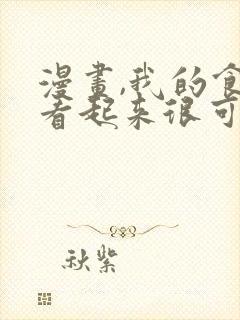 漫畫,我的食
看起来很可
秋紫